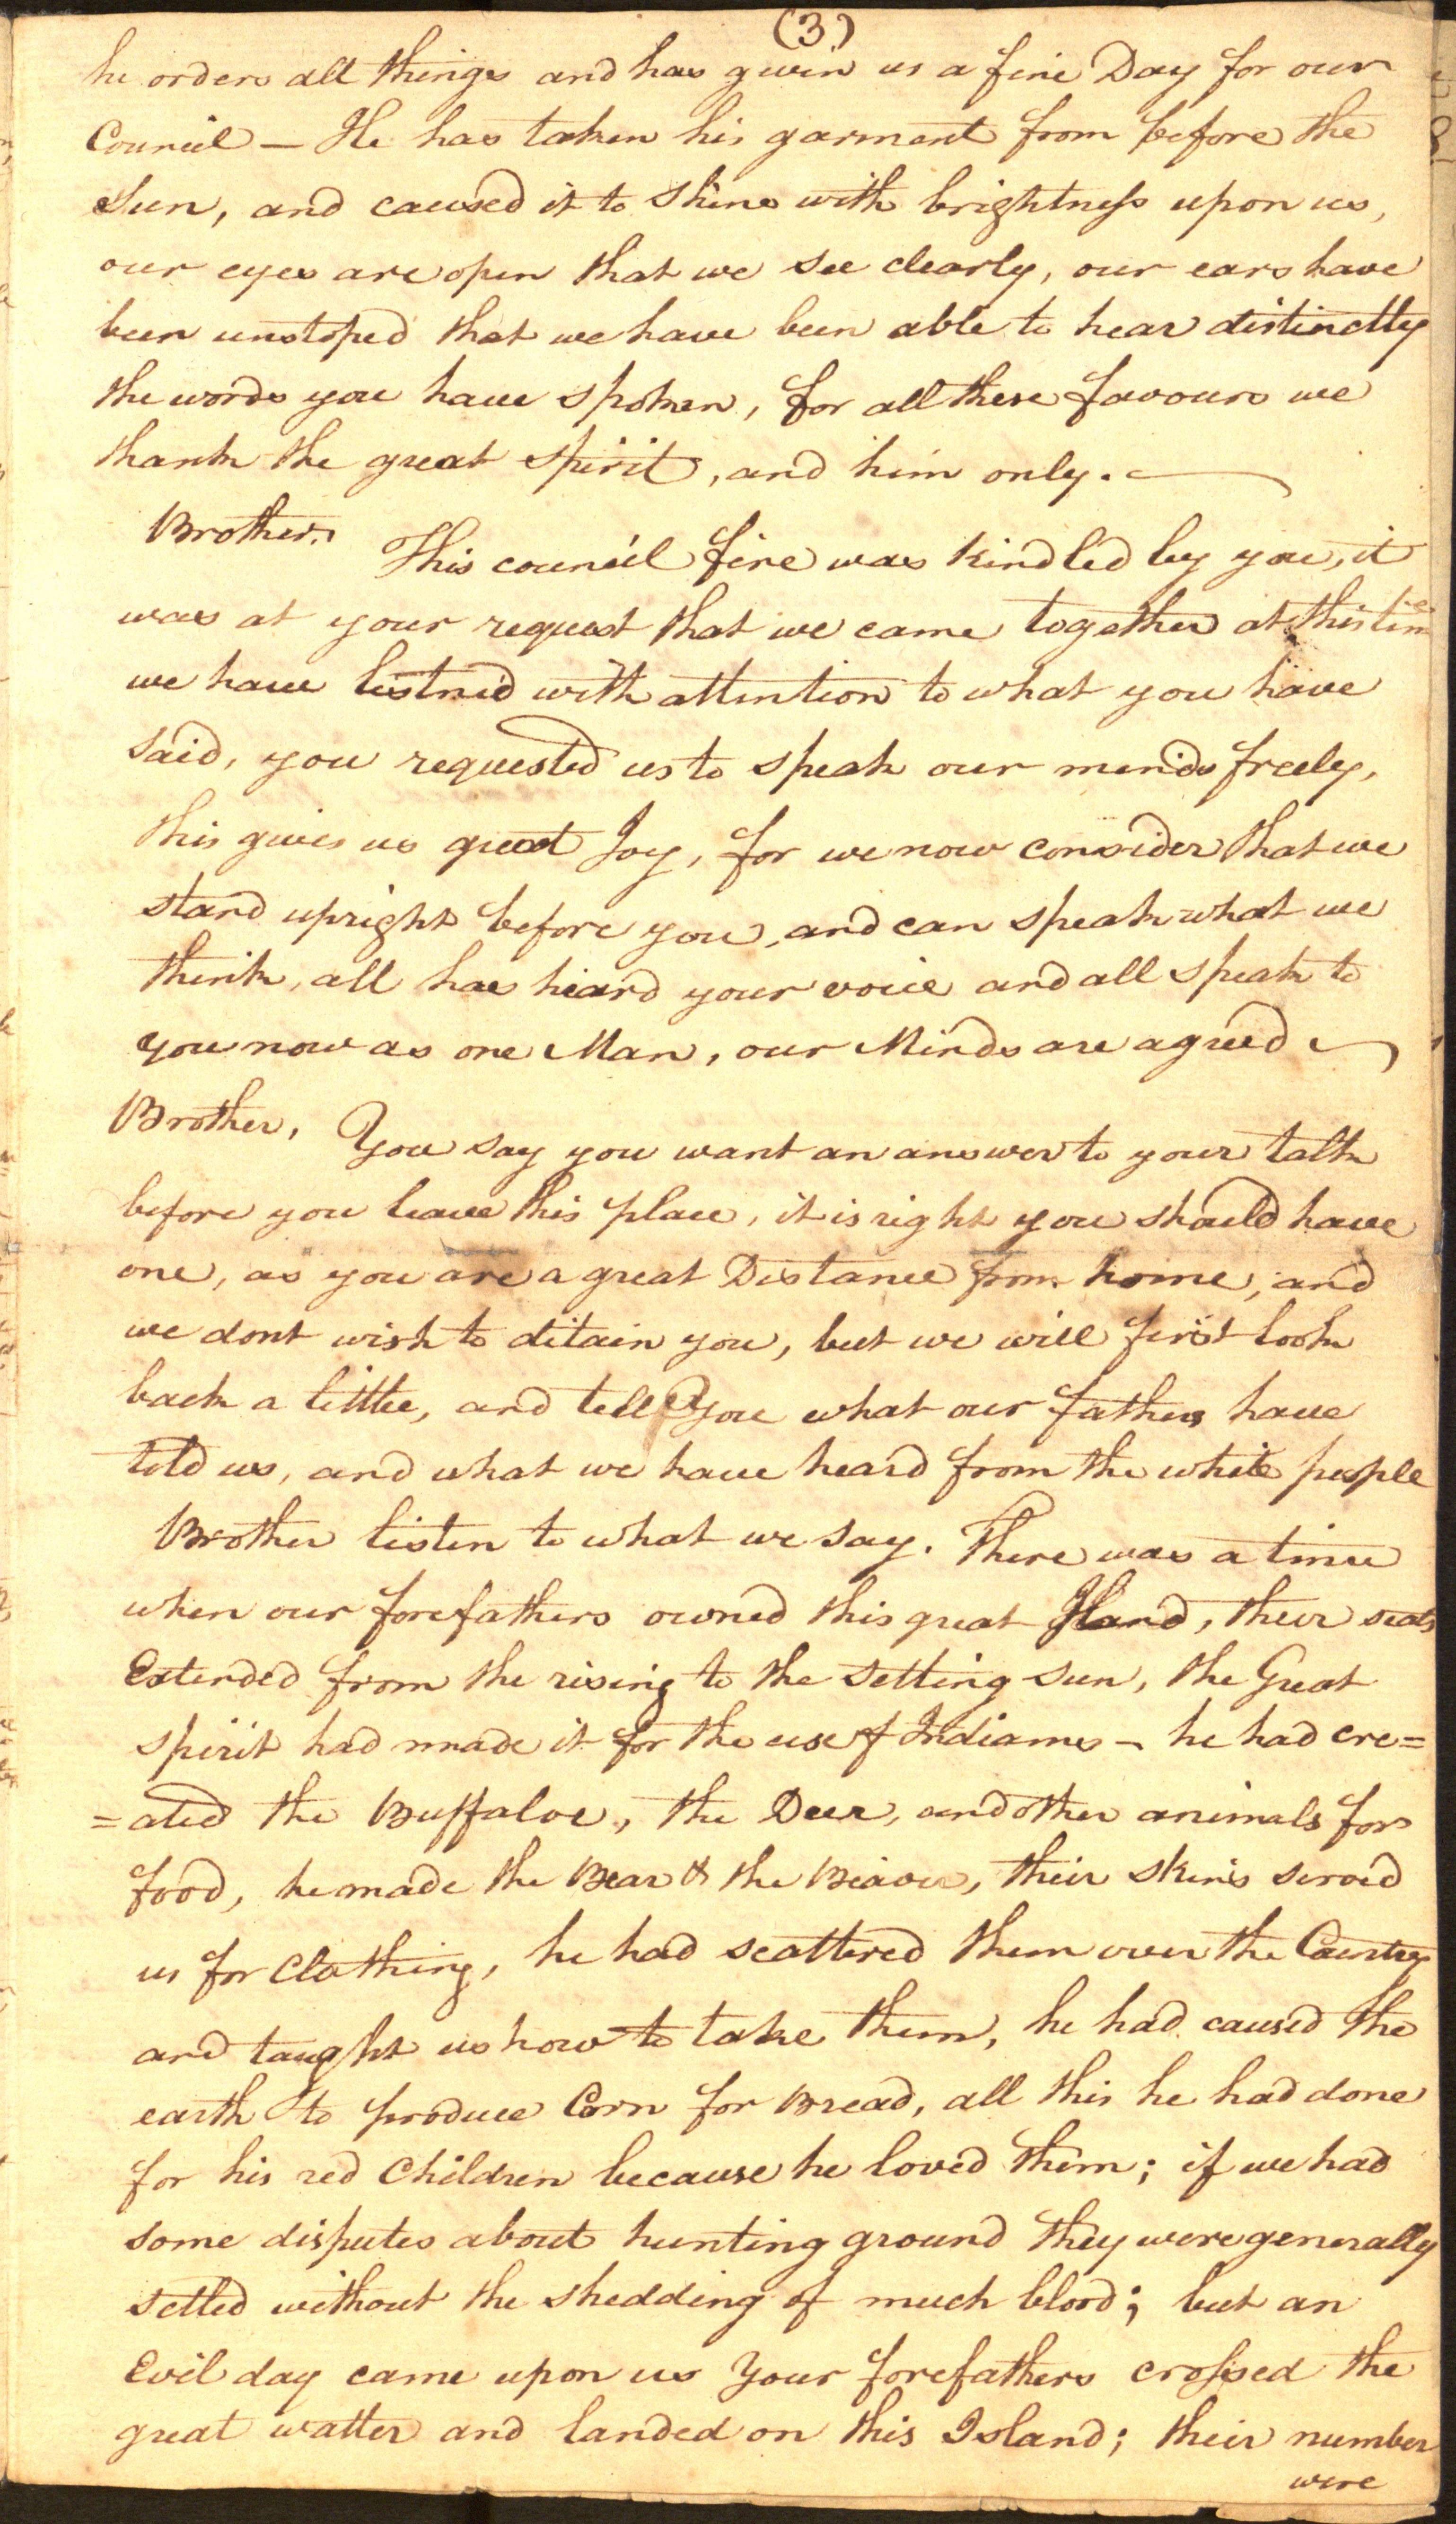 (3)
he orders all things and has given us a fine Day for our
Council — He has taken his garment from before the
Sun, and caused it to shine with brightness upon us,
our eyes are open that we see clearly, our ears have
been unstoped that we have been able to hear distinctly
the words you have spoken, for all these favours we
thank the great spirit, and him only. —
Brother. This council fire was kindled by you, it
was at your request that we came together at this time
we have listned with attention to what you have
said, you requested us to speak our minds freely,
this gives us great Joy, for we now consider that we
stand upright before you, and can speak what we
think, all has heard your voice and all speak to
you now as one Man, our Minds are agreed —
Brother, You say you want an answer to your talk
before you leave this place, it is right you should have
one, as you are a great Distance from home, and
we dont wish to ditain you, but we will first look
back a little, and tell you what our fathers have
told us, and what we have heard from the white people
Brother listen to what we say. There was a time
when our forefathers owned this great Iland, their seats
Extended from the rising to the setting sun, the Great
spirit had made it for the use of Indians — he had cre=
=ated the Buffaloe, the Deer, and other animals for
food, he made the Bear & the Beaver, their skins served
us for Clothing, he had scattered them over the Country
and taught us how to take them, he had caused the
earth to produce Corn for Bread, all this he had done
for his red Children because he loved them; if we had
some disputes about hunting ground they were generally
setled without the shedding of much blood; but an
Evil day came upon us Your forefathers crossed the
great watter and landed on this Island; their number
were